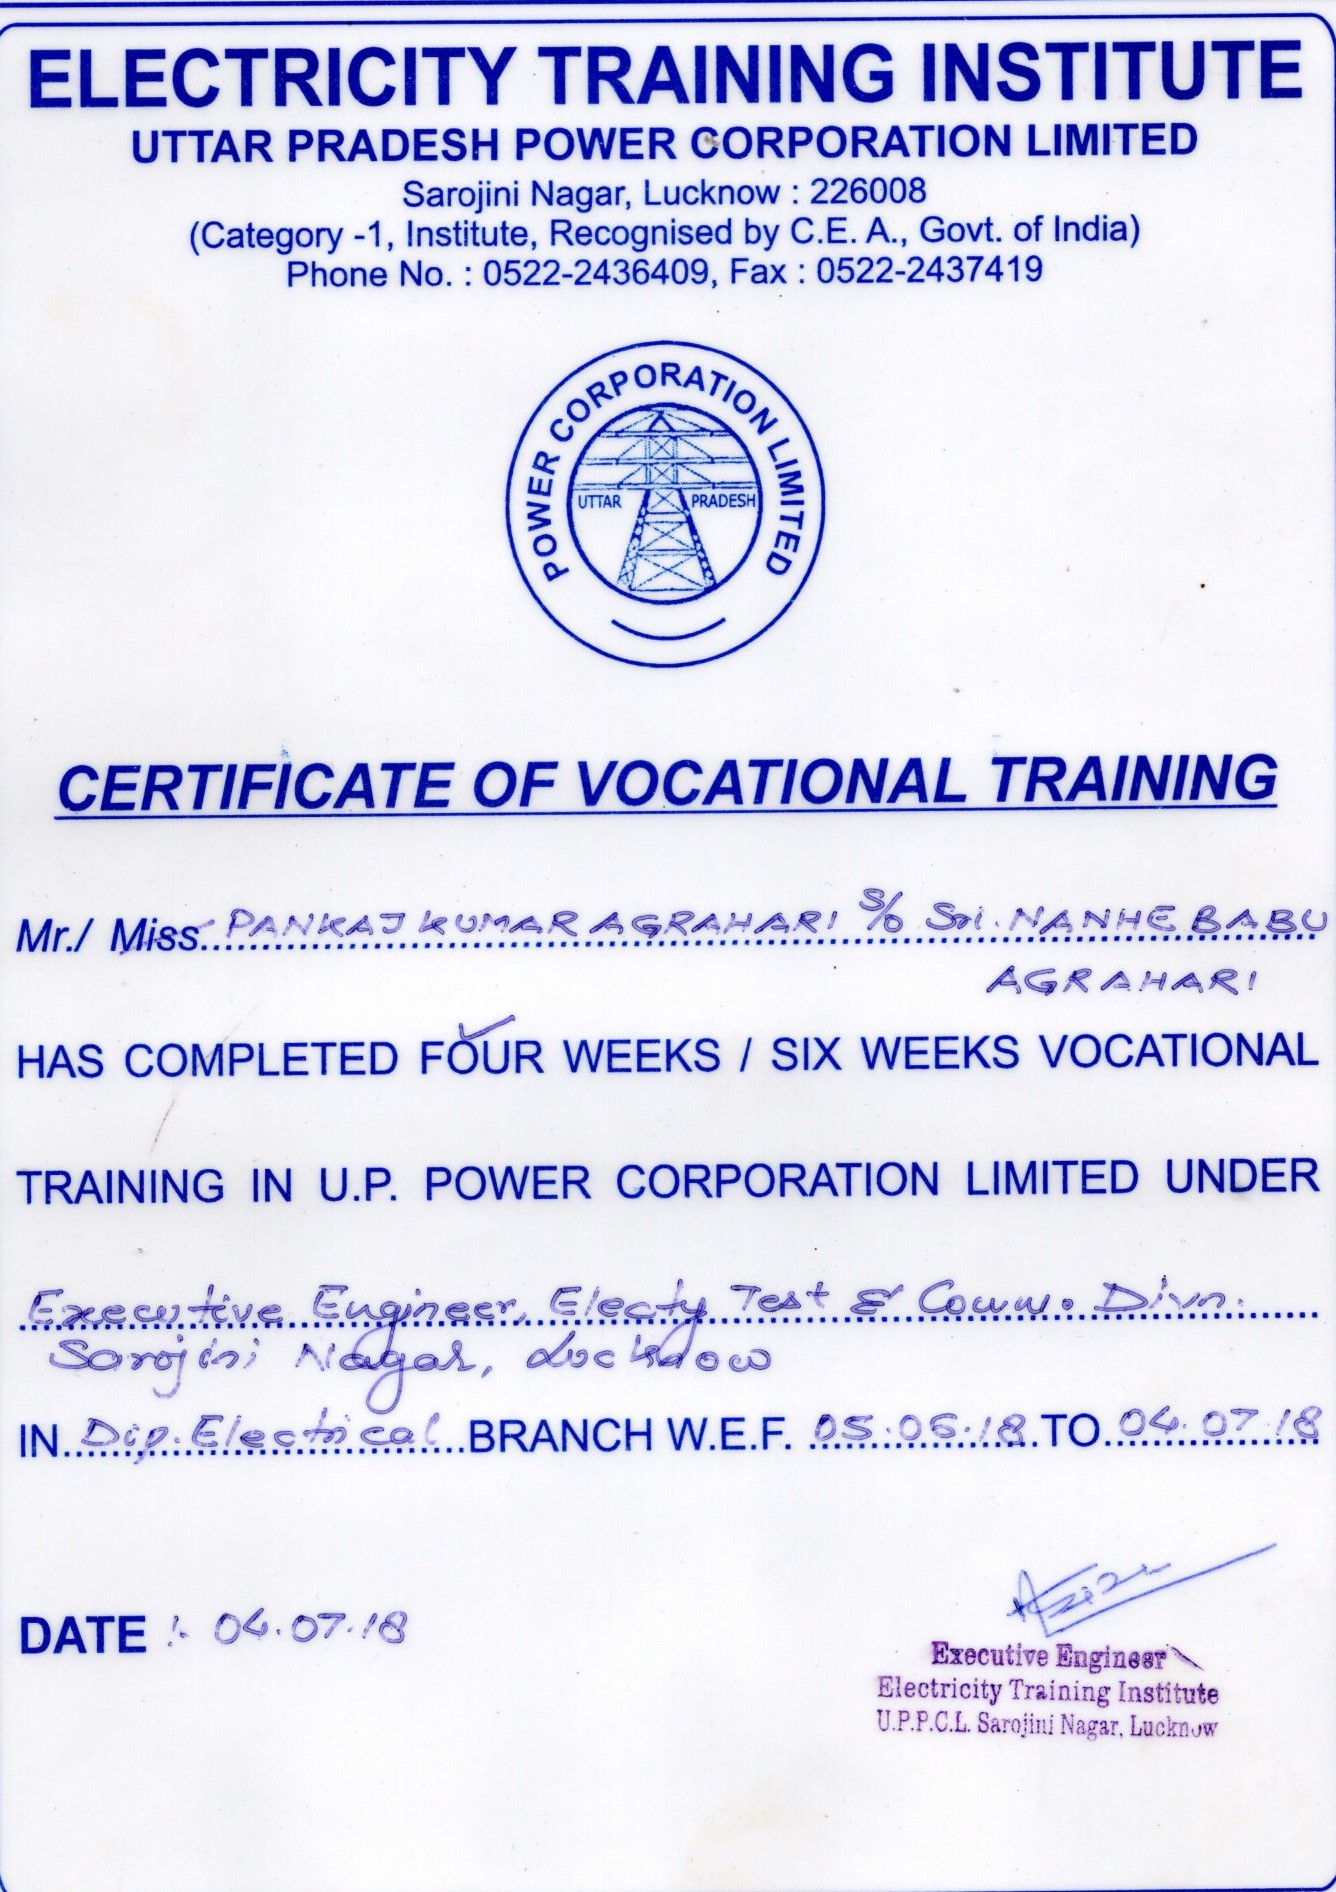 ELECTRICITY TRAINING INSTITUTE
UTTAR PRADESH POWER CORPORATION LIMITED
Sarojini Nagar, Lucknow : 226008
(Category -1, Institute, Recognised by C.E. A., Govt. of India)
Phone No. : 0522-2436409, Fax : 0522-2437419
POWER CORPORATION LIMITED
UTTAR PRADESH
CERTIFICATE OF VOCATIONAL TRAINING
Mr./ Miss PANKAJ KUMAR AGRAHARI S/o Sri. NANHE BABU
AGRAHARI
HAS COMPLETED FOUR WEEKS / SIX WEEKS VOCATIONAL
TRAINING IN U.P. POWER CORPORATION LIMITED UNDER
Executive Engineer, Electy Test & Comm. Divn.
Sarojini Nagar, Lucknow
IN Dip. Electrical BRANCH W.E.F. 05.06.18 TO 04.07.18
DATE :- 04.07.18
Executive Engineer
Electricity Training Institute
U.P.P.C.L. Sarojini Nagar, Lucknow